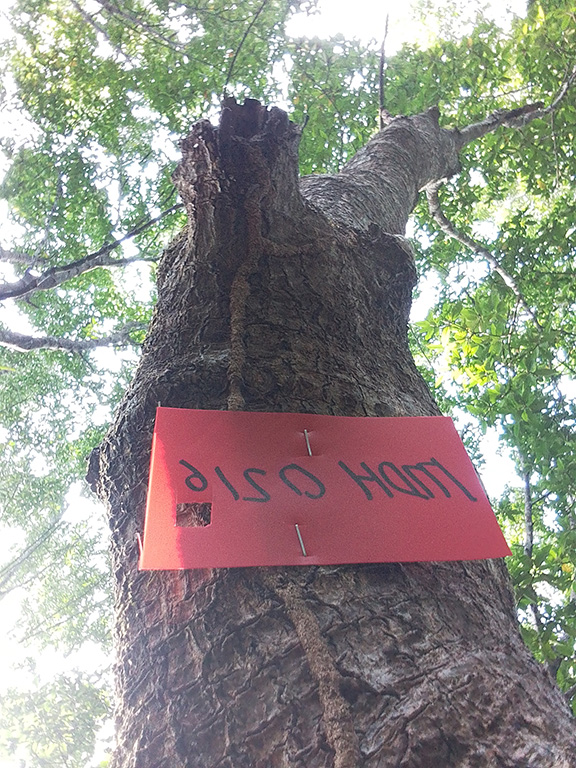 MDH 0216